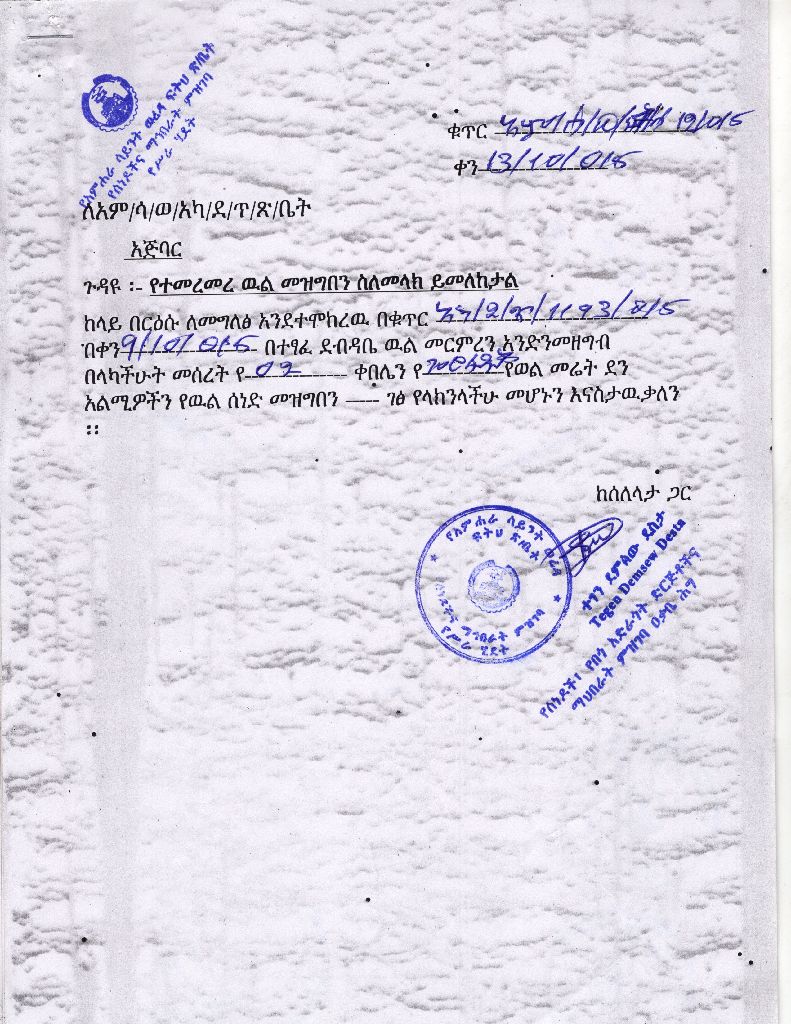 የአምሐራ ሳይንት ወረዳ ፍትህ ጽ/ቤት
የሰነዶችና ማኅበራት ምዝገባ
የሥራ ሂደት
ቁጥር 19/015
ቀን 13/10/015
ለአም/ሳ/ወ/አካ/ደ/ጥ/ጽ/ቤት
አጅባር
ጉዳዩ ፡- የተመረመረ ዉል መዝግበን ስለመላክ ይመለከታል
ከላይ በርዕሱ ለመግለፅ እንደተሞከረዉ በቁጥር
በቀን 9/10/015 በተፃፈ ደብዳቤ ዉል መርምረን እንድንመዘግብ
በላካችሁት መሰረት የ 02 ቀበሌን የ የወል መሬት ደን
አልሚዎችን የዉል ሰነድ መዝግበን ---- ገፅ የላክንላችሁ መሆኑን እናስታዉቃለን
፡፡
ከሰለላታ ጋር
የአምሐራ ሳይንት ወረዳ
ፍትህ ጽ/ቤት
የሰነዶችና ማኅበራት ምዝገባ
የሥራ ሂደት
ተገን ደምሰው ደስታ
Tegen Demsew Desta
የሰነዶች፣ የበጎ አድራጎት ድርጅቶችና
ማህበራት ምዝገባ ዐቃቤ ሕግ